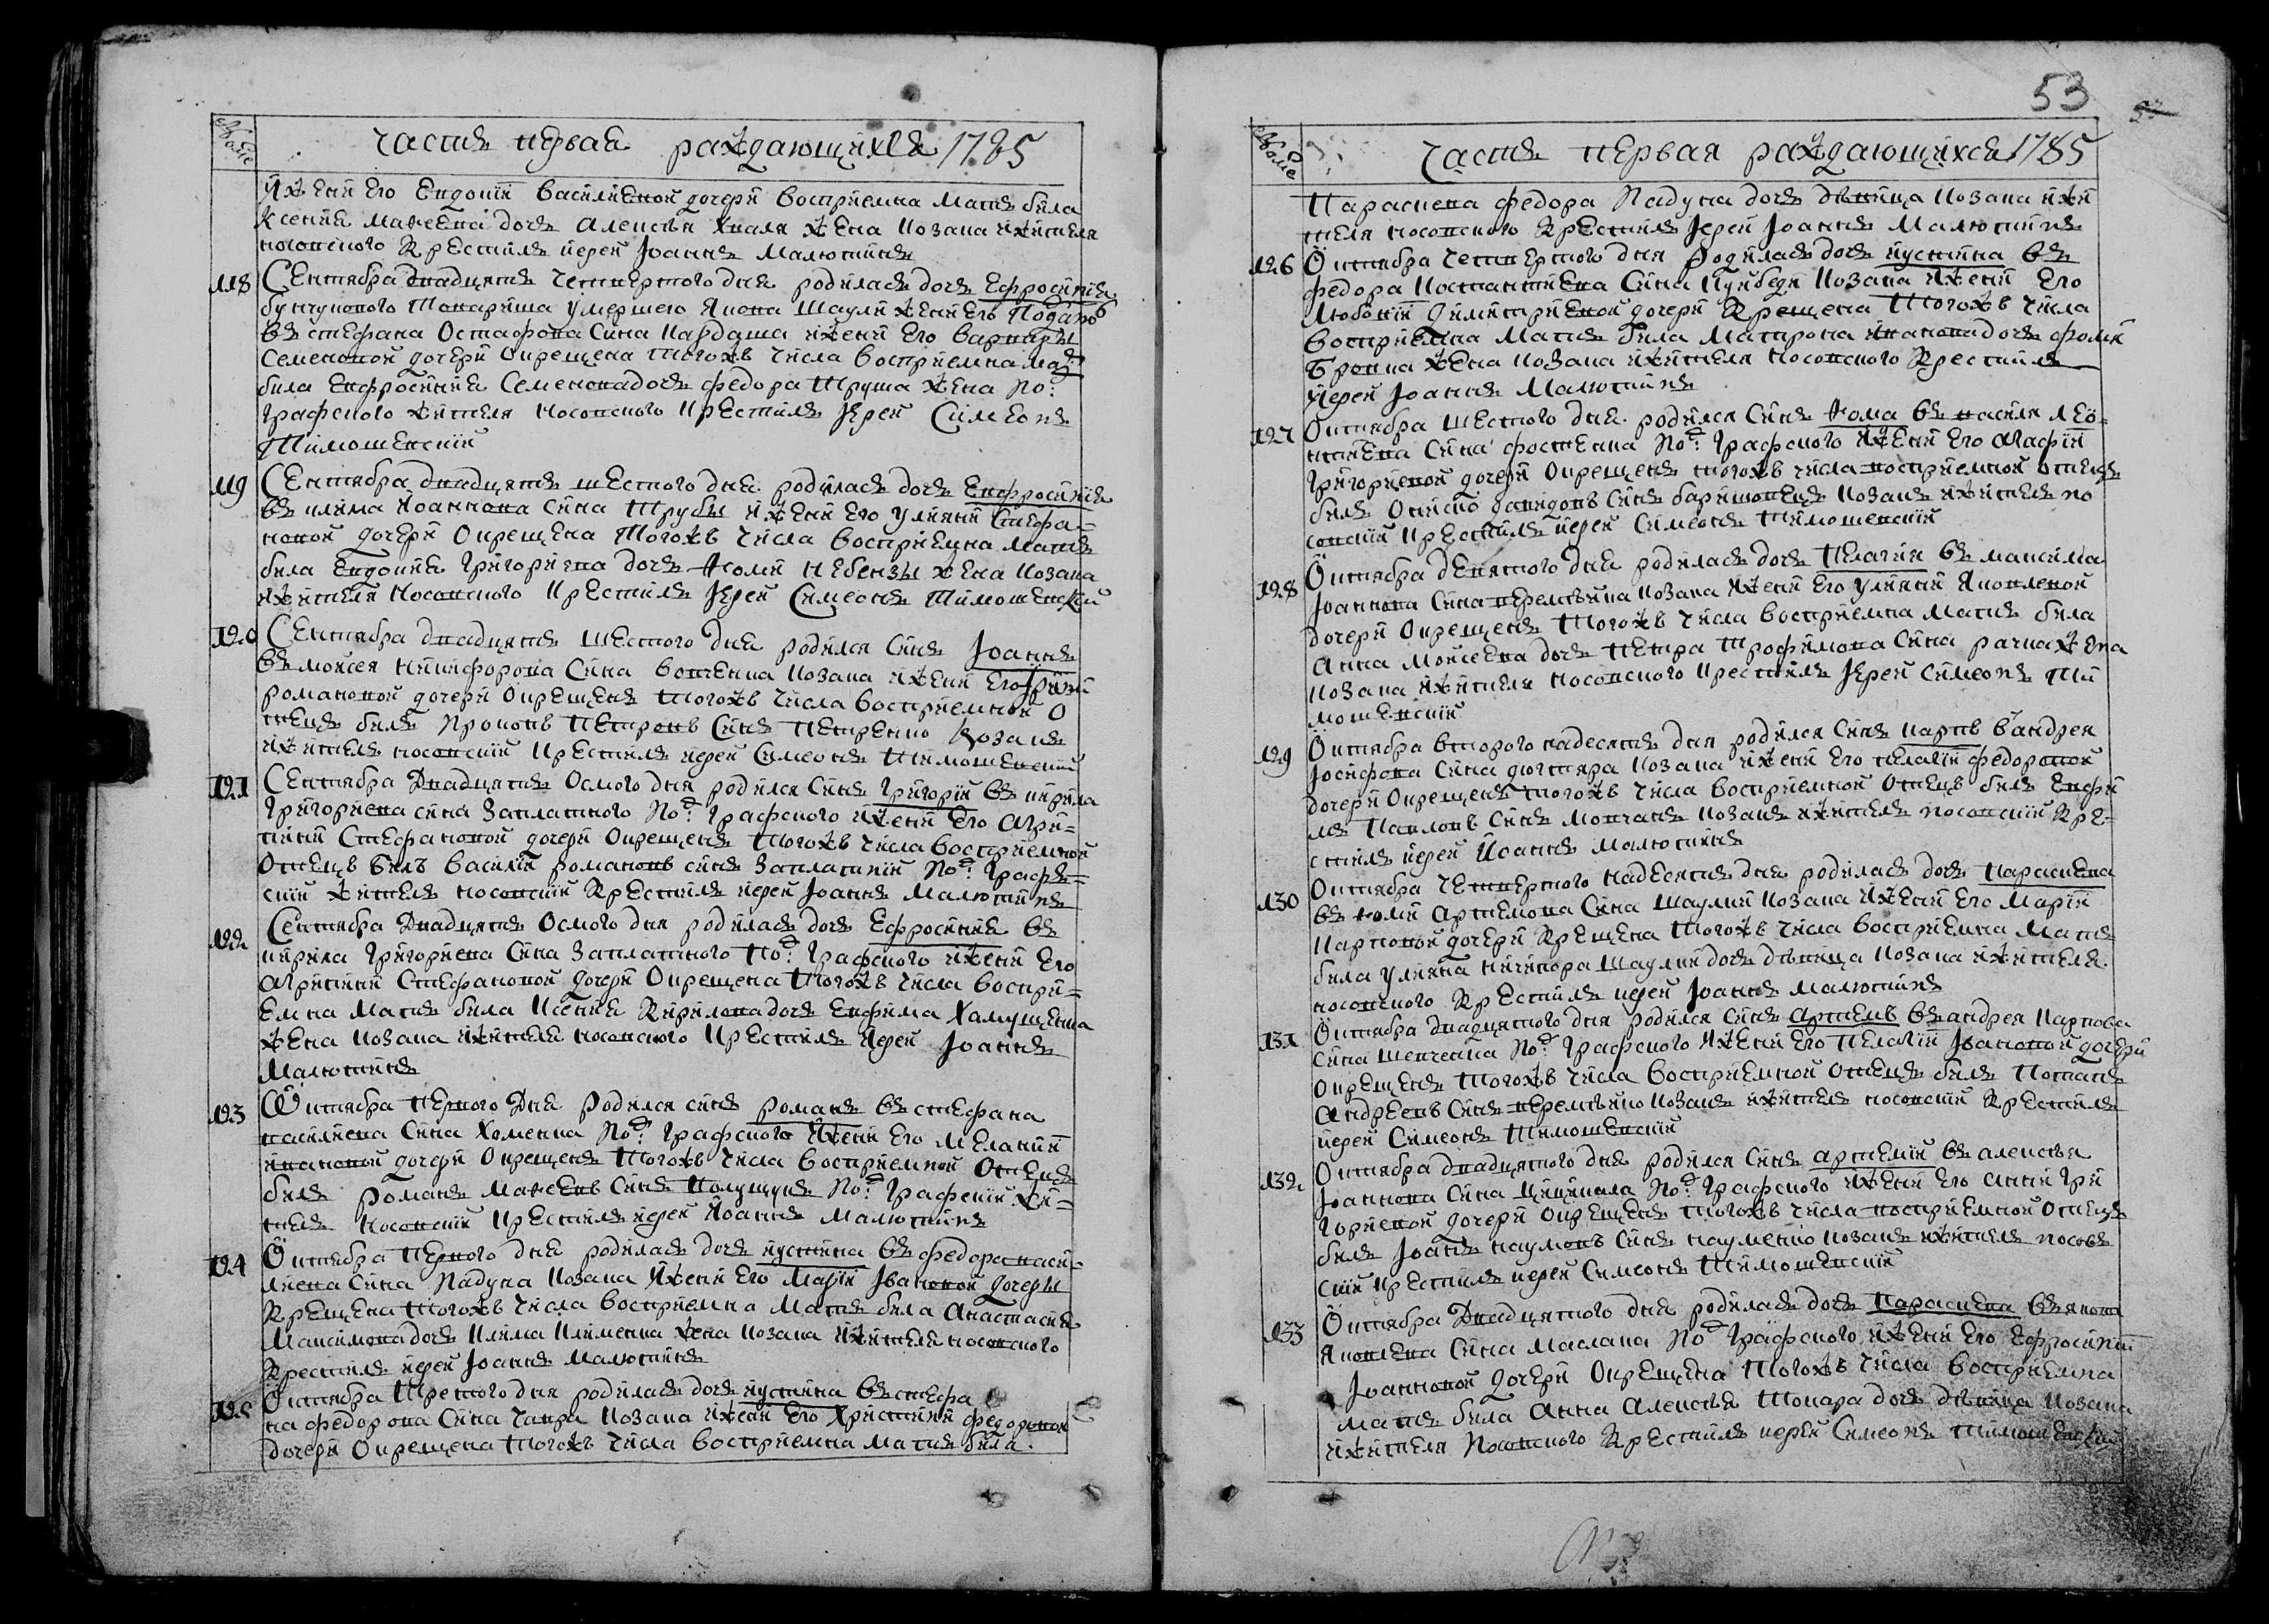 часть первая раждающихся 1785
и жени его Евдокіи Василиевой дочери восприемна мать била
Ксения Матвеева дочь Алексея Хваля жена козака жителя
носовского крестилъ иерей Іоаннъ Малютинъ
118 Сентября двадцять четвертого дня родилась дочь Ефросиния
бунчукового товариша умершего Якова Шаули жени его подано
въ Стефана Остафова сина Кардаша и жени его Варвары
Семеновой дочери окрещена тогожъ числа восприемна мать
била Евфросиния Семенова дочь Федора Труша жена под:
графского жителя носовского крестилъ Іерей Симеонъ
Тимошевскій
119 Сентября двадцять шестого дня родилась дочь Евфросиния
въ Клима Иоаннова сина Трубы и жени его Улияни Стефа-
новой дочери окрещена тогожъ числа восприемна мать
била Евдокия Григориева дочь Фоми Небензы жена козака
жителя носовского крестилъ Іерей Симеонъ Тимошевскій
120 Сентября двадцять шестого дня родился синъ Іоаннъ
въ Мойсея Никифорова сина Вовченка козака и жени его Ірини
Романовой дочери окрещенъ тогожъ числа восприемной о
тець билъ Прокопъ Петровъ синъ Петренко козакъ
житель носовскій крестилъ иерей Симеонъ Тимошевскій
121 Сентября двадцять осмого дня родился синъ Григорій въ Кирила
Григориева сина Заплатного под: графского и жени его Агри-
пини Стефановой дочери окрещенъ тогожъ числа восприемной
отецъ билъ Василій Романовъ синъ Заплатній под: графъ-
скій житель носовскій крестилъ иерей Іоаннъ Малютинъ
122 Сентября двадцять осмого дня родилась дочь Ефросиния въ
Кирила Григориева сина Заплатного под: графского и жени его
Агрипини Стефановой дочери окрещена тогожъ числа воспри-
емна мать била Ксения Кирилова дочь Евфима Халущенка
жена козака жителя носовского крестилъ иерей Іоаннъ
Малютинъ
123 Октября первого дня родился синъ Романъ въ Стефана
Василиева сина Хоменка под: графского и жени его Меланіи
Ивановой дочери окрещенъ тогожъ числа восприемной отець
билъ Романъ Матвеевъ синъ под: графскій жи-
тель носовскій крестилъ иерей Иоаннъ Малютинъ
124 Октября первого дня родилась дочь Иустина въ Федора Васи-
лиева сина Падуна козака и жени его Маріи Івановой дочеры
крещена тогожъ числа восприемна мать била Анастасия
Максимова дочь Клима Клименка жена козака жителя носовского
крестилъ иерей Іоаннъ Малютинъ
125 Октября третого дня родилась дочь Иустина въ Стефа
на Федорова сина Чапра козака и жени его Христини Федоровой
дочери окрещена тогожъ числа восприемна мать била
53
часть первая раждающихся 1785
Параскева Федора Падуна дочь дѣвица козака жи
теля носовского крестилъ Іерей Іоаннъ Малютинъ
126 Октября четвертого дня родилась дочь Иустина въ
Федора Костантиева сина козака и жени его
Любовіи Димитриевой дочери крещена тогожъ числа
восприемна мать била Матрона Иванова дочь Фоми
Бровка жена козака жителя носовского крестилъ
Иерей Іоаннъ Малютинъ
127 Октября шестого дня родился синъ Фома въ Василя Лео-
нтиева сина Фостенка под: графского и жени его Агафіи
Григориевой дочери окрещенъ тогожъ числа восприемной отецъ
билъ Ониско Давидовъ синъ козакъ житель но
совскій крестилъ иерей Симеонъ Тимошевскій
128 Октября девятого дня родилась дочь Пелагия въ Максима
Іоаннова сина Перемѣйка козака и жени его Улияни Яковлевой
дочери окрещенъ тогожъ числа восприемна мать била
Анна Мойсеева дочь Петра Трофимова сина жена
козака жителя носовского крестилъ Іерей Симеонъ Ти
мошевскій
129 Октября второго надесять дня родился синъ Карпъ в Андрея
Іосифова сина Дигтяра козака и жени его Пелагіи Федоровой
дочери окрещенъ тогожъ числа восприемной отецъ билъ Евфи
мъ Павловъ синъ Мовчанъ козакъ житель носовскій кре-
стилъ иерей Иоаннъ Малютинъ
130 Октября четвертого надесять дня родилась дочь Параскева
въ Фоми Артемова сина Шаулки козака и жени его Маріи
Карповой дочери крещена тогожъ числа восприемна мать
била Улияна Никифора Шаулки дочь дѣвица козака жителя
носовского крестилъ иерей Іоаннъ Малютинъ
131 Октября двадцятого дня родился синъ Артемъ въ Андрея Карпова
сина Шевченка под: графского и жени его Пелагіи Івановой дочери
окрещенъ тогожъ числа восприемной отець билъ Потапъ
Андреевъ синъ Перемѣйко козакъ житель носовскій крестилъ
иерей Симеонъ Тимошевскій
132 Октября двадцятого дня родился синъ Артемій въ Алексѣя
Іоаннова сина под: графского и жени его Анни Гри
гориевой дочери окрещенъ тогожъ числа восприемной отецъ
билъ Іоаннъ Наумовъ синъ Науменко козакъ житель носовъ
скій крестилъ иерей Симеонъ Тимошевскій
133 Октября двадцятого дня родилась дочь Параскева въ Якова
Яковлева сина Маслака под: графского и жени его Ефросиніи
Іоанновой дочери окрещена тогожъ числа восприемна
мать била Анна Алексѣя Токара дочь дѣвица козака
жителя носовского крестилъ иерей Симеонъ Тимошевскій